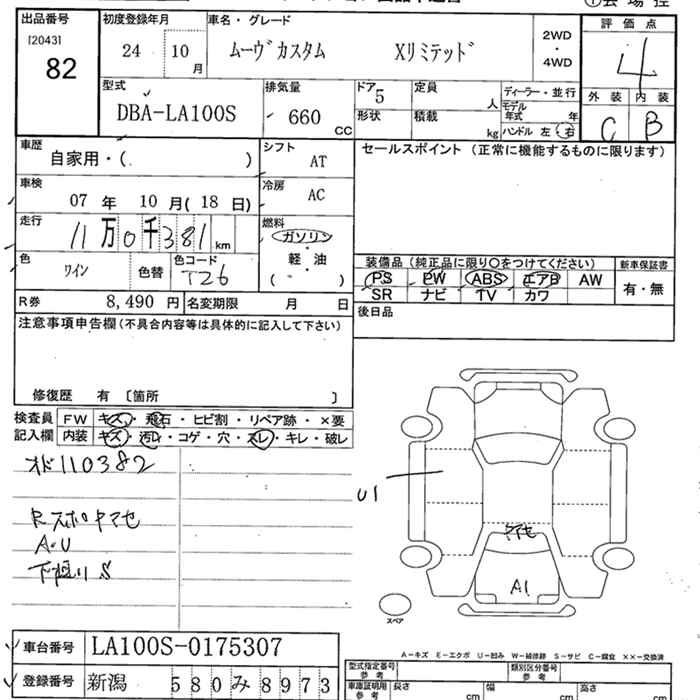 出品番号
[2043]
82
初度登録年月
24 10 月
車名・グレード
ムーヴカスタム Xリミテッド
2WD
・
4WD
評価点
4
外装 内装
C B
型式
DBA-LA100S
排気量
660 CC
ドア 5
形状
定員 人
積載 kg
ディーラー・並行
モデル年式 年
ハンドル 左・右
車歴
自家用・( )
シフト
AT
セールスポイント (正常に機能するものに限ります)
車検
07 年 10 月( 18 日)
冷房
AC
走行
11万0千381 km
燃料
ガソリン
・
軽・油
( )
色
ワイン
色替
色コード
T26
装備品(純正品に限り○をつけてください)
新車保証書
PS PW ABS エアB AW
SR ナビ TV カワ
有・無
R券 8,490 円
名変期限 月 日
後日品
注意事項申告欄(不具合内容等は具体的に記入して下さい)
修復歴 有 〔箇所 〕
検査員記入欄
FW キズ・飛石・ヒビ割・リペア跡・×要
内装 キズ・汚れ・コゲ・穴・スレ・キレ・破レ
オド110382
Rスポヤマセ
A・U
下廻りS
U1
ヤマセ
A1
スペア
A-キズ E-エクボ U-凹み W-補修跡 S-サビ C-腐食 ××-交換済
車台番号 LA100S-0175307
登録番号 新潟 580み8973
型式指定番号
参考
類別区分番号
参考
車庫証明用
参考
長さ cm
幅 cm
高さ cm